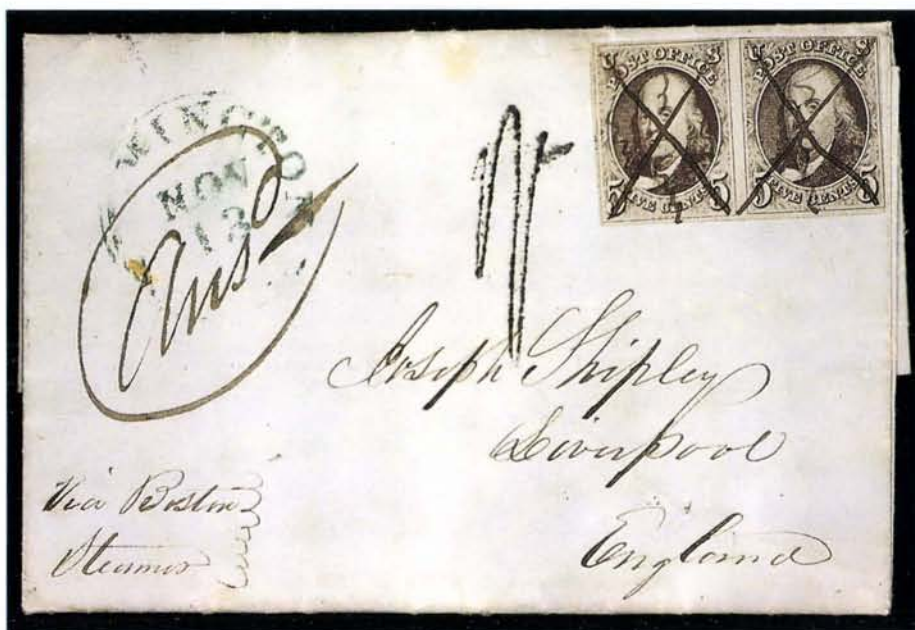 U S
POST OFFICE
5 FIVE CENTS 5
U S
POST OFFICE
5 FIVE CENTS 5
NOV
13
Ansd
Joseph Shipley
Liverpool
England
Via Boston
Steamer